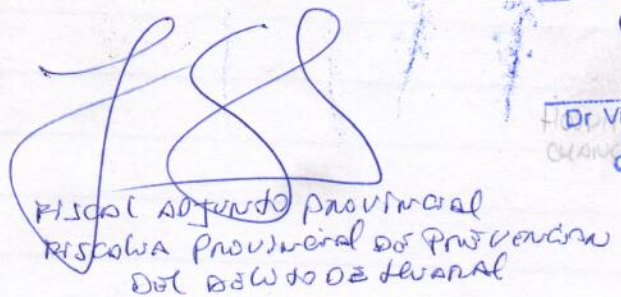 Dr Vi
FISCAL ADJUNTO PROVINCIAL
FISCALIA PROVINCIAL DE PREVENCIÓN
DEL DELITO DE HUARAL